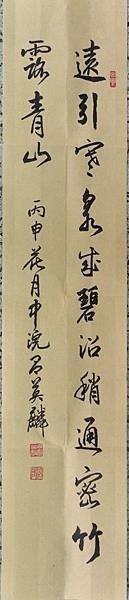 遠引寒泉成碧沼稍通密竹
露青山
丙申花月中浣呂英麟